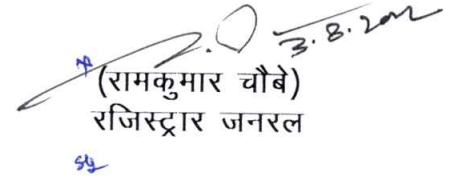 3.8.2022
(रामकुमार चौबे)
रजिस्ट्रार जनरल